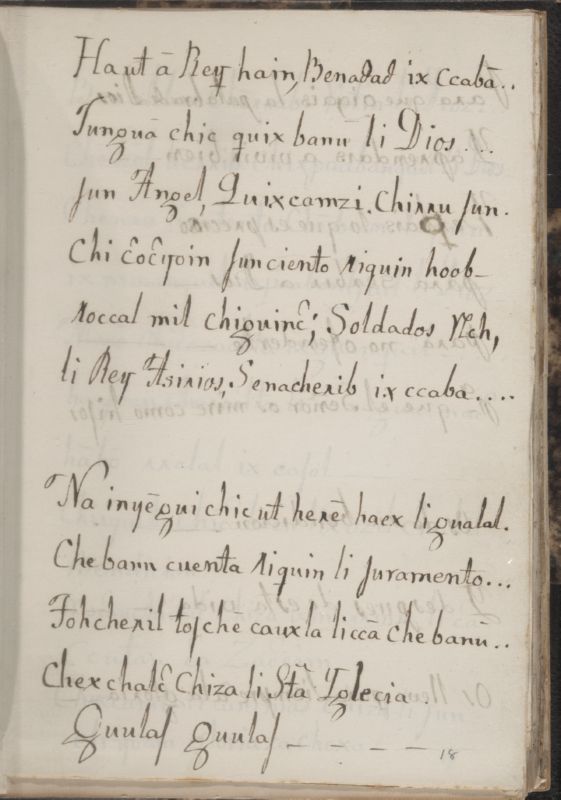 Haut ā Rey hain, Benadad ix ccabā..
Junguā chic quix banū li Dios....
Jun Angel, Quixcamzi. Chirru jun.
Chi c̃oc̃yoin Junciento riquin hoob-
roccal mil chiguinc̃; Soldados rech,
li Rey Asirios, Senacherib ix ccaba....
Na inyēgui chic ut herē haex ligualal.
Che banu cuenta riquin li juramento...
Johcheril tojche cauxla liccā che banū..
Chex chalc̃ chiza li Stā Iglecia.
Guulaj guulaj - - - -
18